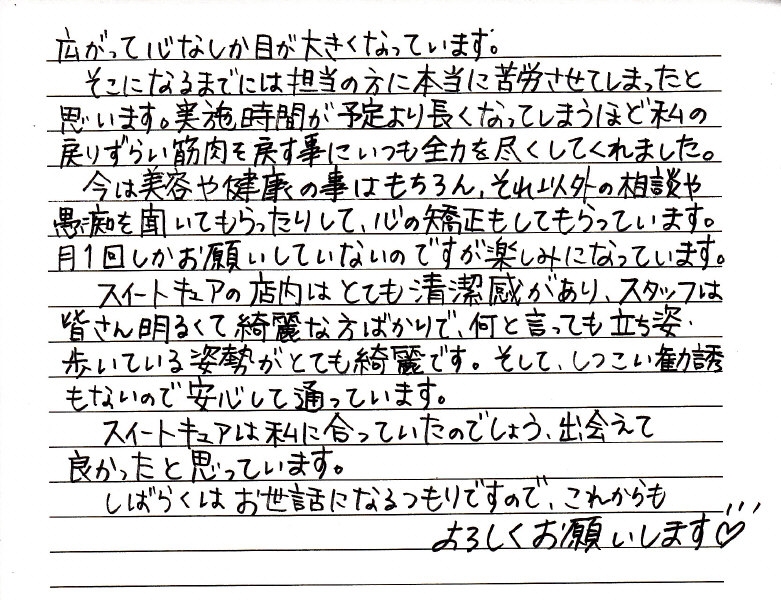 広がって心なしか目が大きくなっています。
そこになるまでには担当の方に本当に苦労させてしまったと
思います。実施時間が予定より長くなってしまうほど私の
戻りずらい筋肉を戻す事にいつも全力を尽くしてくれました。
今は美容や健康の事はもちろん、それ以外の相談や
愚痴を聞いてもらったりして、心の矯正もしてもらっています。
月1回しかお願いしていないのですが楽しみになっています。
スイートキュアの店内はとても清潔感があり、スタッフは
皆さん明るくて綺麗な方ばかりで、何と言っても立ち姿・
歩いている姿勢がとても綺麗です。そして、しつこい勧誘
もないので安心して通っています。
スイートキュアは私に合っていたのでしょう、出会えて
良かったと思っています。
しばらくはお世話になるつもりですので、これからも
よろしくお願いします♡